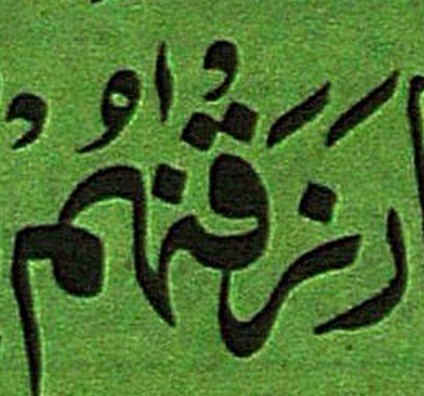 رَزَقْنٰهُمْ